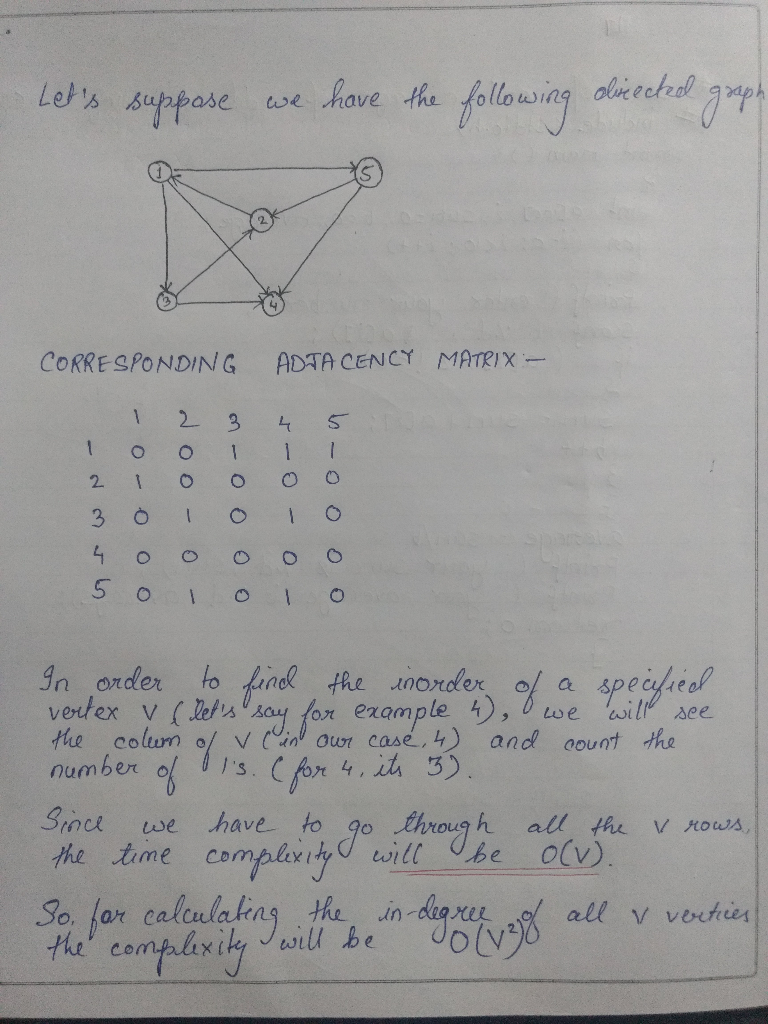 Let's suppose we have the following directed graph
1 5
2
3 4
CORRESPONDING ADJACENCY MATRIX :-
1 2 3 4 5
1 0 0 1 1 1
2 1 0 0 0 0
3 0 1 0 1 0
4 0 0 0 0 0
5 0 1 0 1 0
In order to find the inorder of a specified
vertex V (let's say for example 4), we will see
the colum of V (in our case, 4) and count the
number of 1's. (for 4, its 3).
Since we have to go through all the V rows,
the time complexity will be O(V).
So, for calculating the in-degree of all V vertices
the complexity will be O(V²)